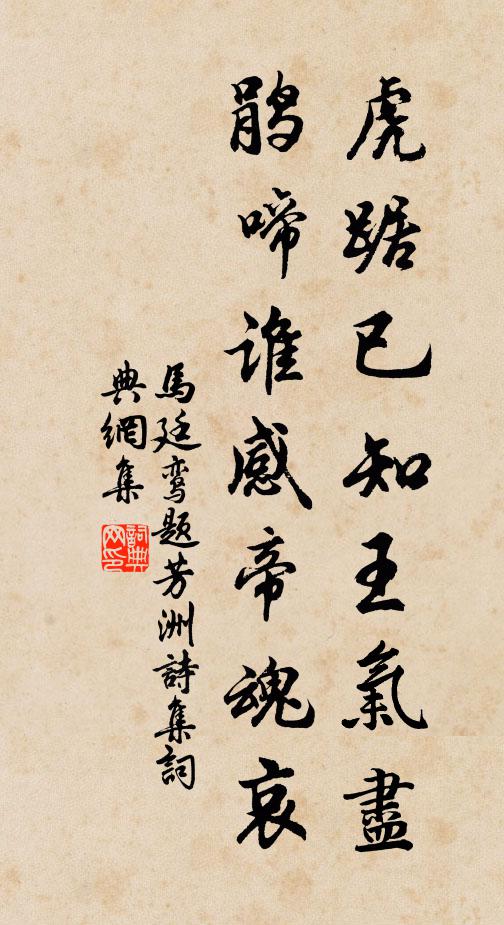 虎踞已知王氣盡
鹃啼谁感帝魂哀
馬廷鸾题芳洲詩集詞
典網集
詞典网印